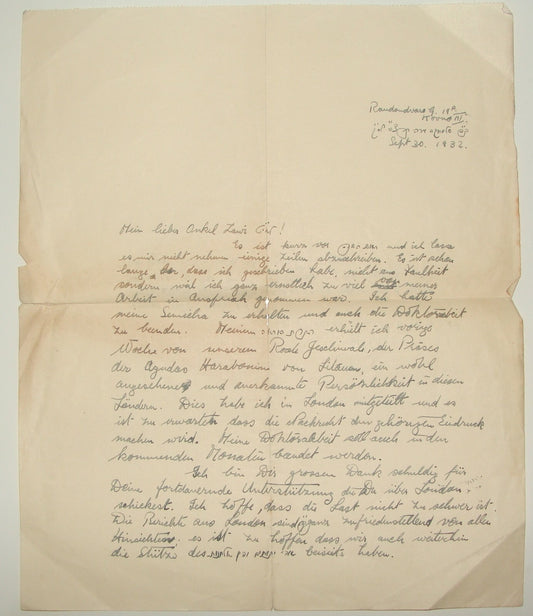 Raudondvaro g. 19a
Kovno
Sept 30. 1932.
Mein lieber Onkel !
Es ist kurz vor und ich lasse
es mir nicht nehmen einige Zeilen abzuschreiben. Es ist schon
lange her, dass ich geschrieben habe, nicht aus Faulheit
sondern weil ich ganz ernstlich zu viel meiner
Arbeit in Anspruch genommen war. Ich hatte
meine Semicha zu erhalten und auch die Doktorarbeit
zu beenden. Meinen erhielt ich vorige
Woche von unserem Rosh Jeschiwah, der Präses
der Agudas Harabonim von Litauen, ein wohl
angesehener und anerkannte Persönlichkeit in diesen
Ländern. Dies habe ich in London mitgeteilt und es
ist zu erwarten dass die Nachricht den gehörigen Eindruck
machen wird. Meine Doktorarbeit soll auch in den
kommenden Monaten beendet werden.
Ich bin Dir grossen Dank schuldig für
Deine fortdauernde Unterstützung die Du über London
schickest. Ich hoffe, dass die Last nicht zu schwer ist.
Die Berichte aus London sind ganz zufriedenstellend von allen
Hinsichten. es ist zu hoffen dass wir auch weiterhin
die Stütze des beiseits haben.